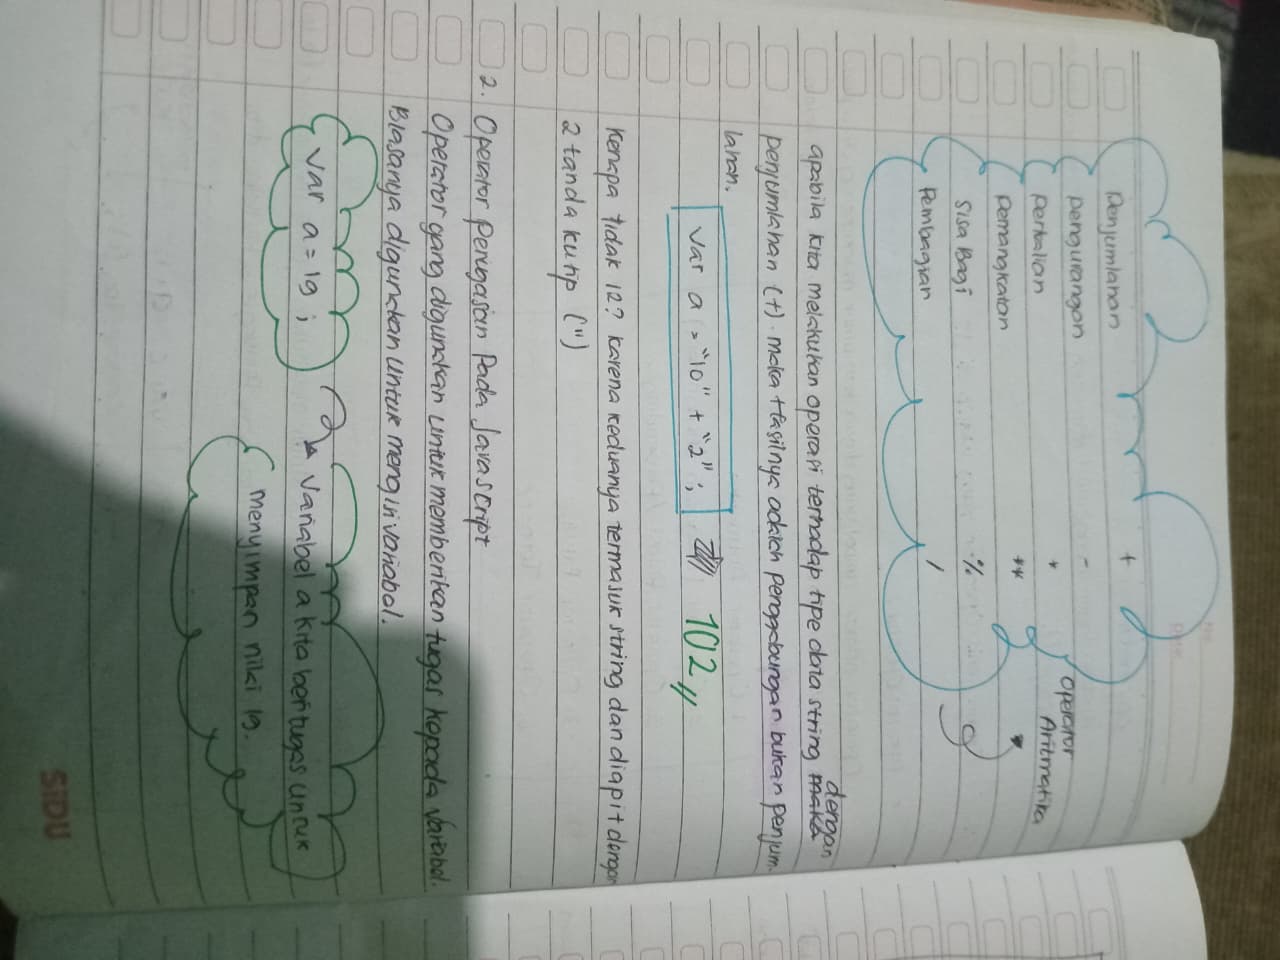 Penjumlahan +
pengurangan -
perkalian *
Pemangkatan **
Sisa Bagi %
Pembagian /
operator
Aritmatika
apabila kita melakukan operasi terhadap tipe data string dengan
penjumlahan (+). maka Hasilnya adalah penggabungan bukan penjum
lahan.
var a = "10" + "2"; 102,,
Kenapa tidak 12? karena keduanya termasuk string dan diapit dengan
2 tanda kutip (")
2. Operator penugasan Pada Javascript
Operator yang digunakan untuk memberikan tugas kepada variabel.
Biasanya digunakan untuk mengisi variabel.
var a = 19;
variabel a kita bertugas untuk
menyimpan nilai 19.
SIDU